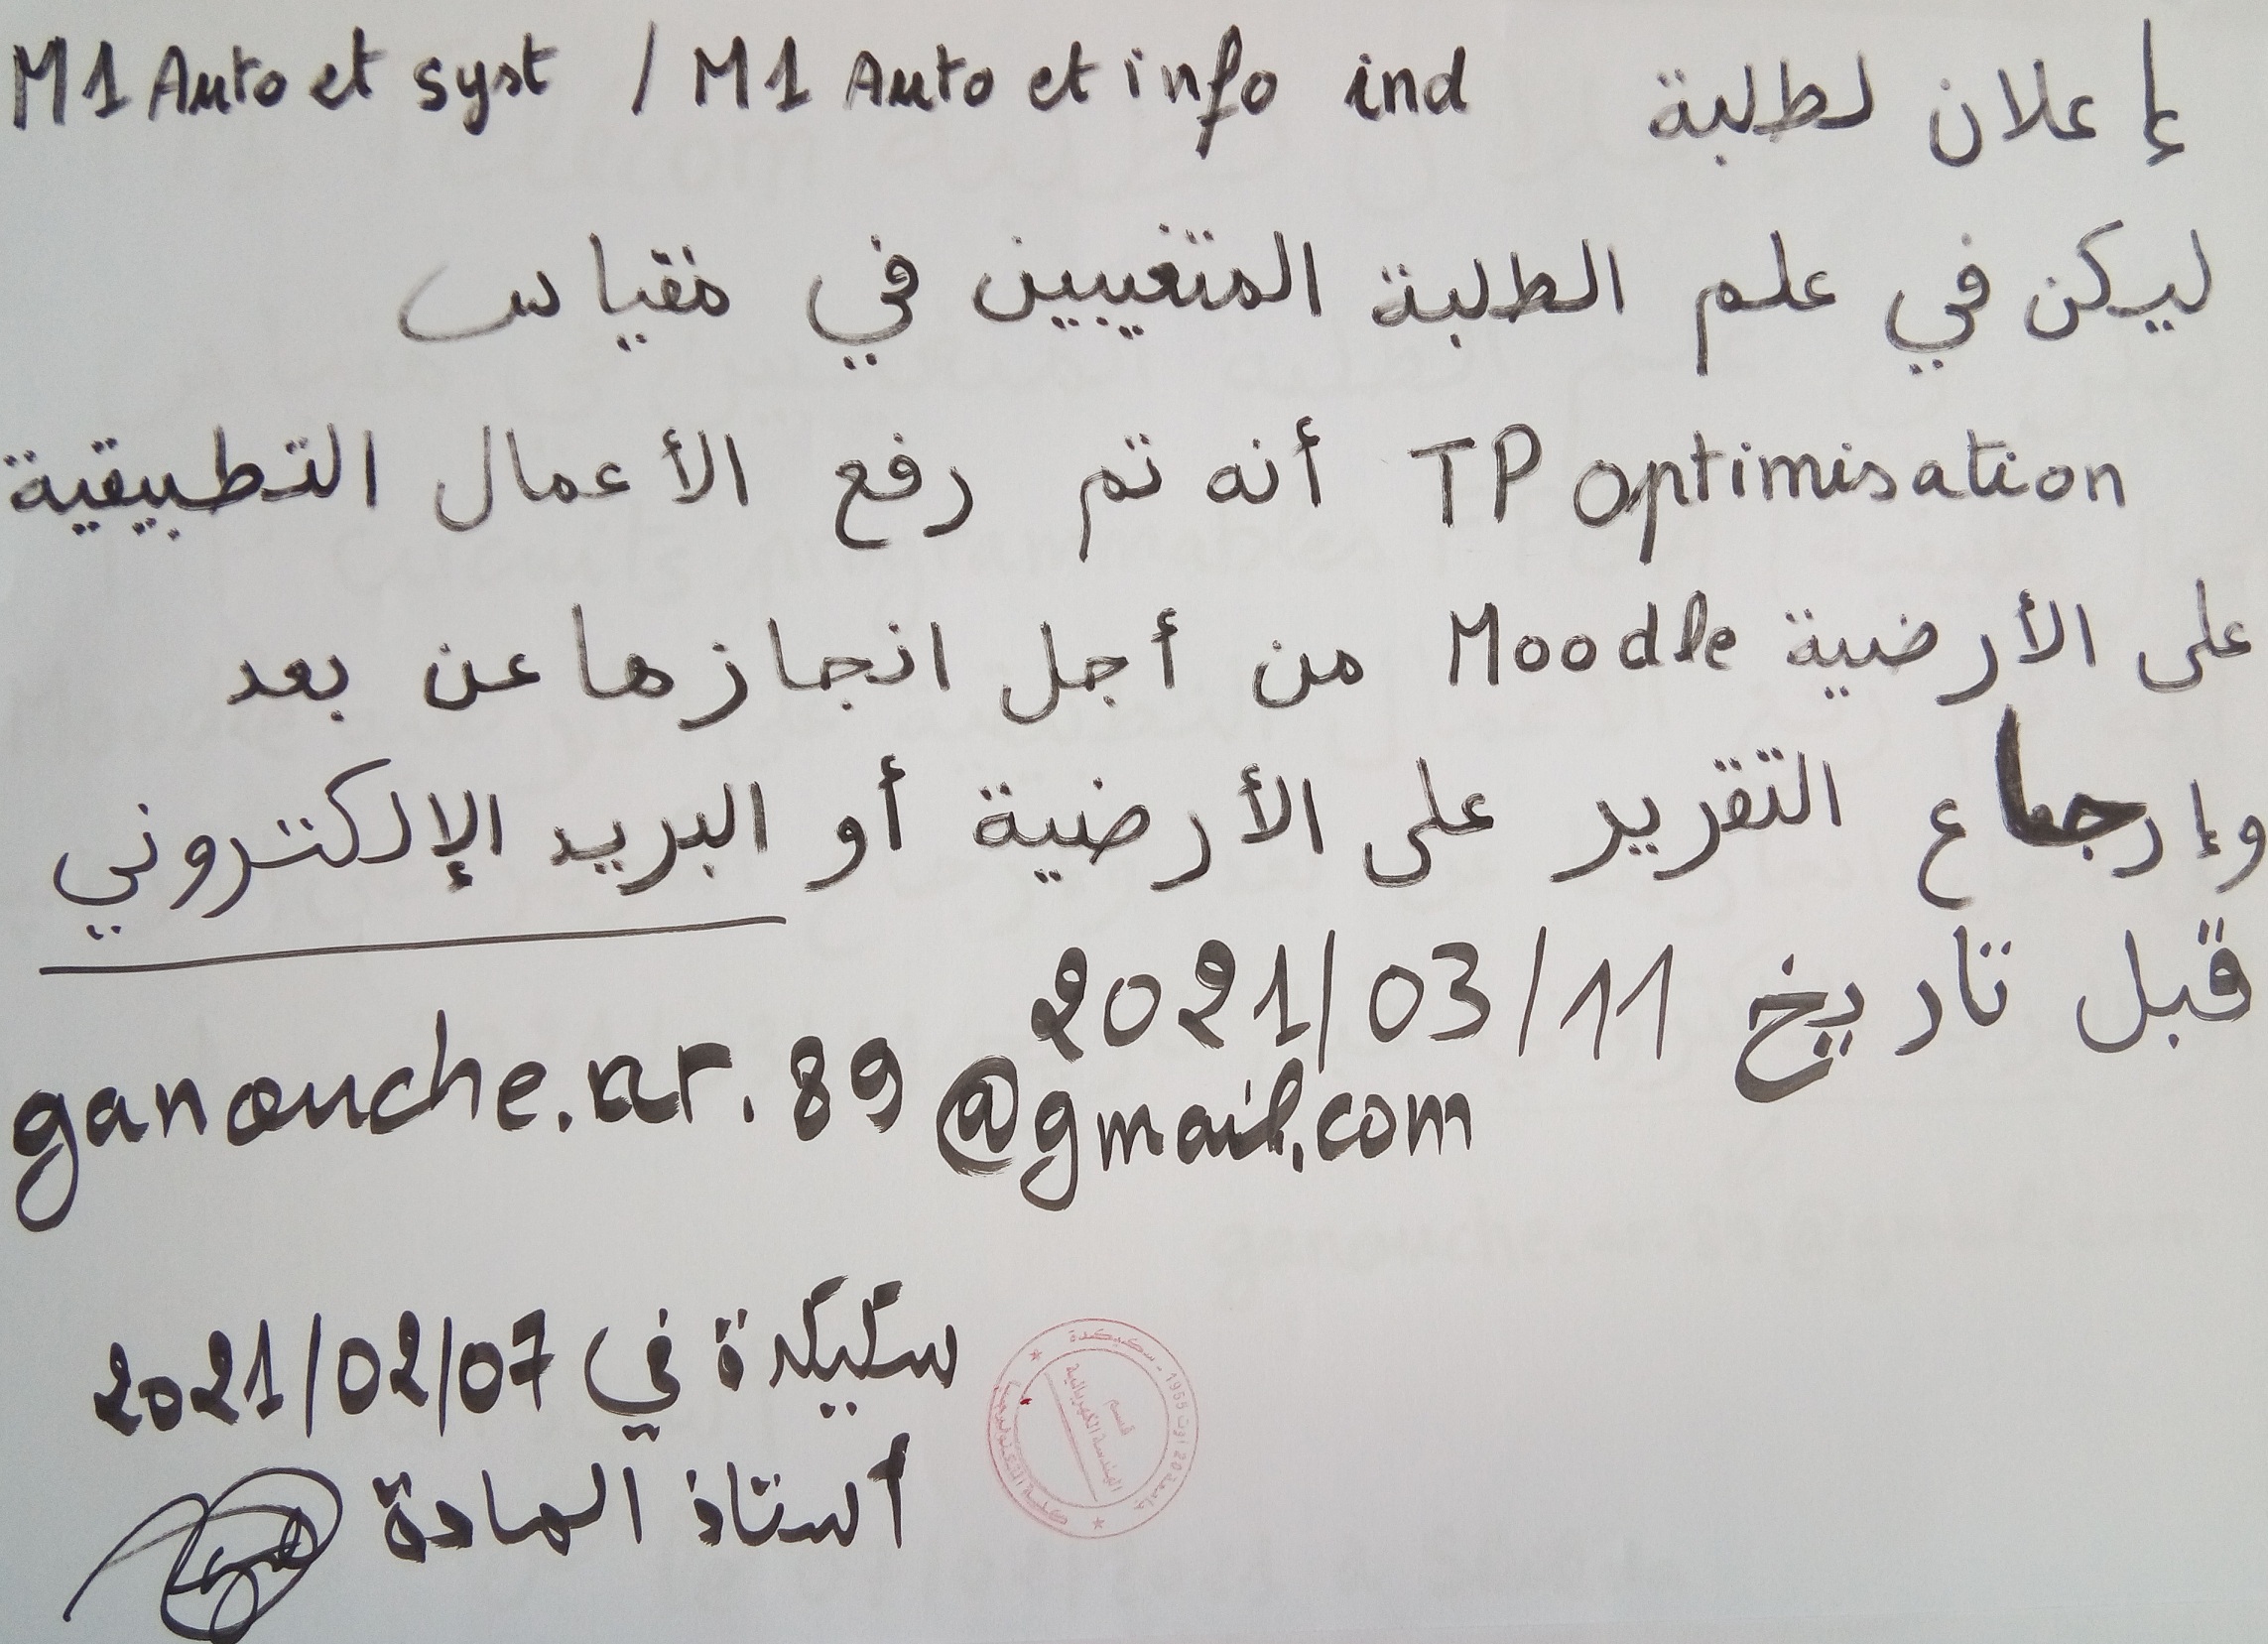 إعلان لطلبة M1 Auto et syst / M1 Auto et info ind
ليكن في علم الطلبة المتغيبين في مقياس
TP optimisation أنه تم رفع الأعمال التطبيقية
على الأرضية Moodle من أجل انجازها عن بعد
وإرجاع التقرير على الأرضية أو البريد الإلكتروني
قبل تاريخ 2021/03/11
ganouche.nr.89@gmail.com
سكيكدة في 2021/02/07
أستاذ المادة
جامعة 20 أوت 1955 - سكيكدة
قسم
الهندسة الكهربائية
كلية التكنولوجيا